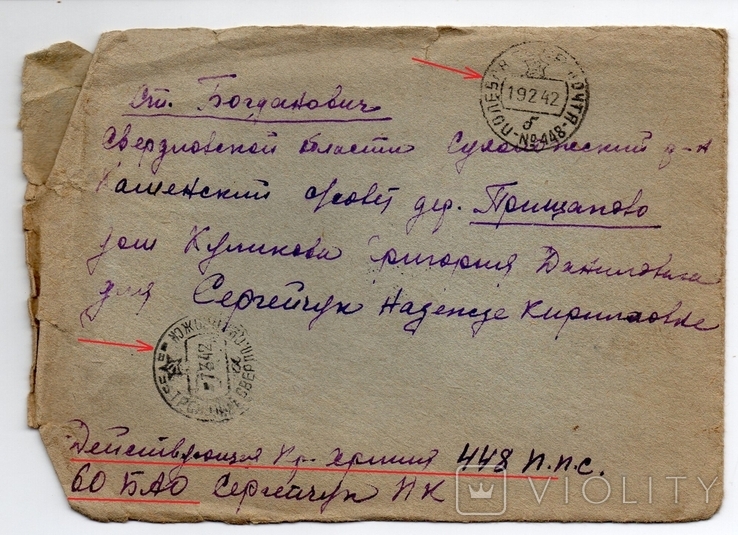 Ст. Богданович
Свердловской области Сухоложский р-н
Каменский с/совет дер. Прищаново
дом Куликова Григория Даниловича
для Сергейчук Надежде Кириловне
ПОЛЕВАЯ ПОЧТА
19242
б
№ 448
7 3 42
СВЕРДЛ.
Действующая Кр. Армия 448 п.п.с.
60 БАО Сергейчук ПК
VIOLITY